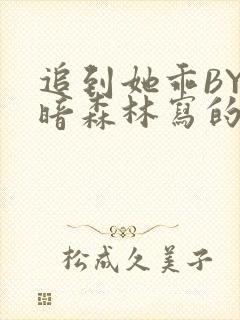 追到她乖BY
暗森林寫的
松成久美子